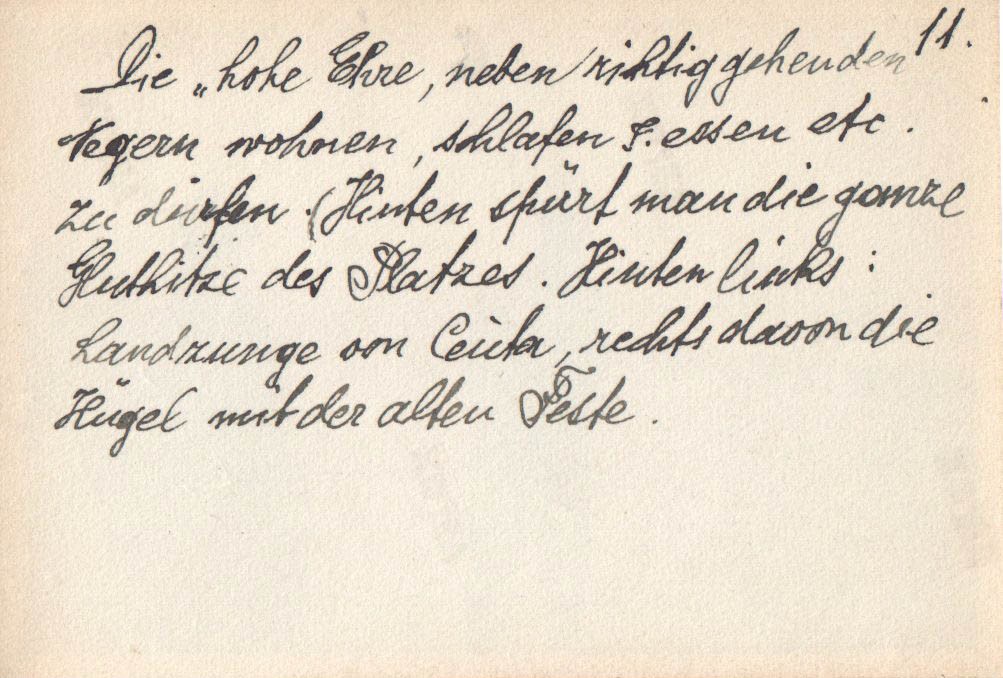 11.
Die „hohe Ehre, neben richtiggehenden
Negern wohnen, schlafen u. essen etc.
zu dürfen. (Hinten spürt man die ganze
Gluthitze des Platzes. Hinten links:
Landzunge von Ceuta, rechts davon die
Hügel mit der alten Feste.